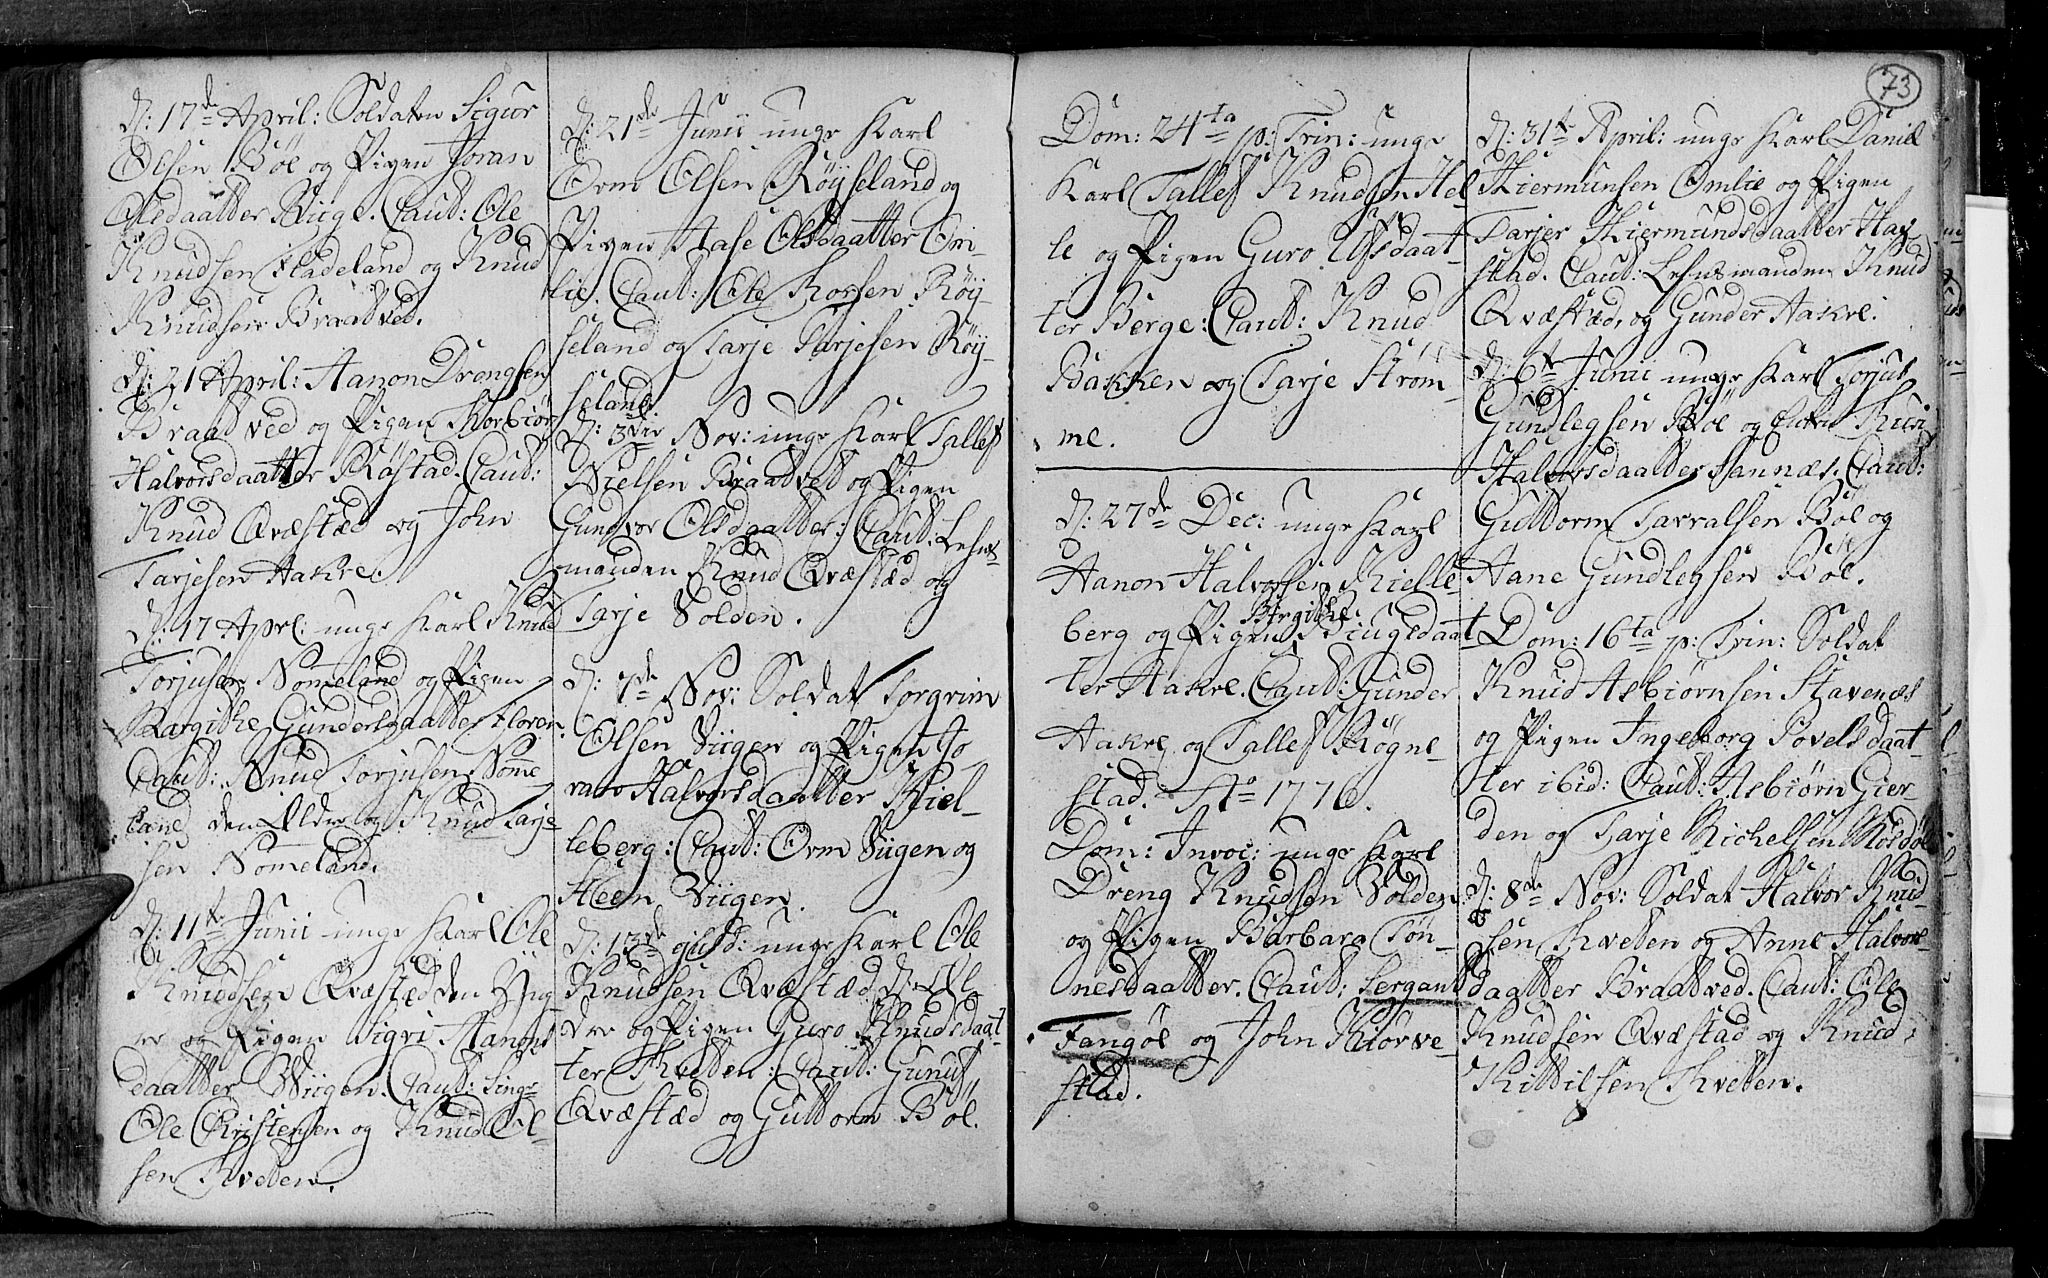 D: 17de April: Soldaten Sigur
Olsen Böe og Pigen Joran
Olsdaatter Biuge. Caut: Ole
Knudsen Fladeland og Knud
Knudsen Braatved.
D: 21 April: Aanon Drengsen
Braatved og Pigen Thorbiør
Halvorsdaatter Røstad. Caut:
Knud Qvæstæd og John
Tarjesen Aakre.
D: 17 Aprl: unge Karl Knud
Torjusen Nomeland og Pigen
Bargithe Gundersdaatter Floren
Caut: Knud Torjusen Nome
land den Eldre og Knud Tarje
sen Nomeland.
D: 11te Junii unge Karl Ole
Knudsen Qvæstæd den Yng
re og Pigen Sigri Aanons
daatter Viigen. Caut:
Ole Christensen og Knud Ol-
sen Tveten.
D: 21de Junii unge Karl
Orm Olsen Röyseland og
Pigen Aase Olsdaatter Om-
lie. Caut: Ole Torsen Röy-
seland og Tarje Tarjesen Röy-
seland
D: 3die Nov: unge Karl Tallef
Nielsen Braatved og Pigen
Gundvor Olsdaatter: Caut: Lehns
manden Knud Qvæstæd og
Tarje Volden.
D: 7de Nov: Soldat Torgrim
Olsen Viigen og Pigen Jo
ran Halvorsdaatter Kiel-
leberg: Caut: Orm Viigen og
Steen Viigen.
D: 13de ejusd: unge Karl Ole
Knudsen Qvæstæd D. El
dre og Pigen Guro Knudsdaat
ter Tveten: Caut: Gunuf
Qvæstæd og Guttorm Böe.
73
Dom: 24ta p: Trin: unge
Karl Tallef Knudsen Hel
le og Pigen Guro Ufsdaat-
ter Berge: Caut: Knud
Bakken og Tarje Strøm-
me.
D: 27de Dec: unge Karl
Aanon Halvorsen Kielle
berg og Pigen Birgithe Biugsdaat
ter Aakre. Caut: Gunder
Aakre og Tallef Røgne-
stad. Ao 1776.
Dom: Invoc: unge Karl
Dreng Knudsen Volden
og Pigen Barbara Tøn-
nesdaatter. Caut: Sergant
Fangöe og John Kiörve-
stad.
D: 31te April: unge Karl Daniel
Stiermunsen Omlie og Pigen
Tarjer Stiermundsdaatter Hay
stad. Caut: Lehnsmanden Knud
Qvæstæd, og Gunder Aakre.
D: 6te Junii unge Karl Torjus
Gundlegsen Böe og Enken Kari
Halvorsdaatter Sannæs. Caut:
Guttorm Tarralsen Böe og
Aane Gundlegsen Böe.
Dom: 16ta p: Trin: Soldat
Knud Asbiørnsen Stavenæs
og Pigen Ingeborg Povelsdaat
ter ibid: Caut: Asbiørn Gier-
den og Tarje Michelsen
D: 8de Nov: Soldat Halvor Knud
sen Tveten og Anne Halvors
daatter Braatved. Caut: Ole
Knudsen Qvæstad og Knud
Kittilsen Tveten.